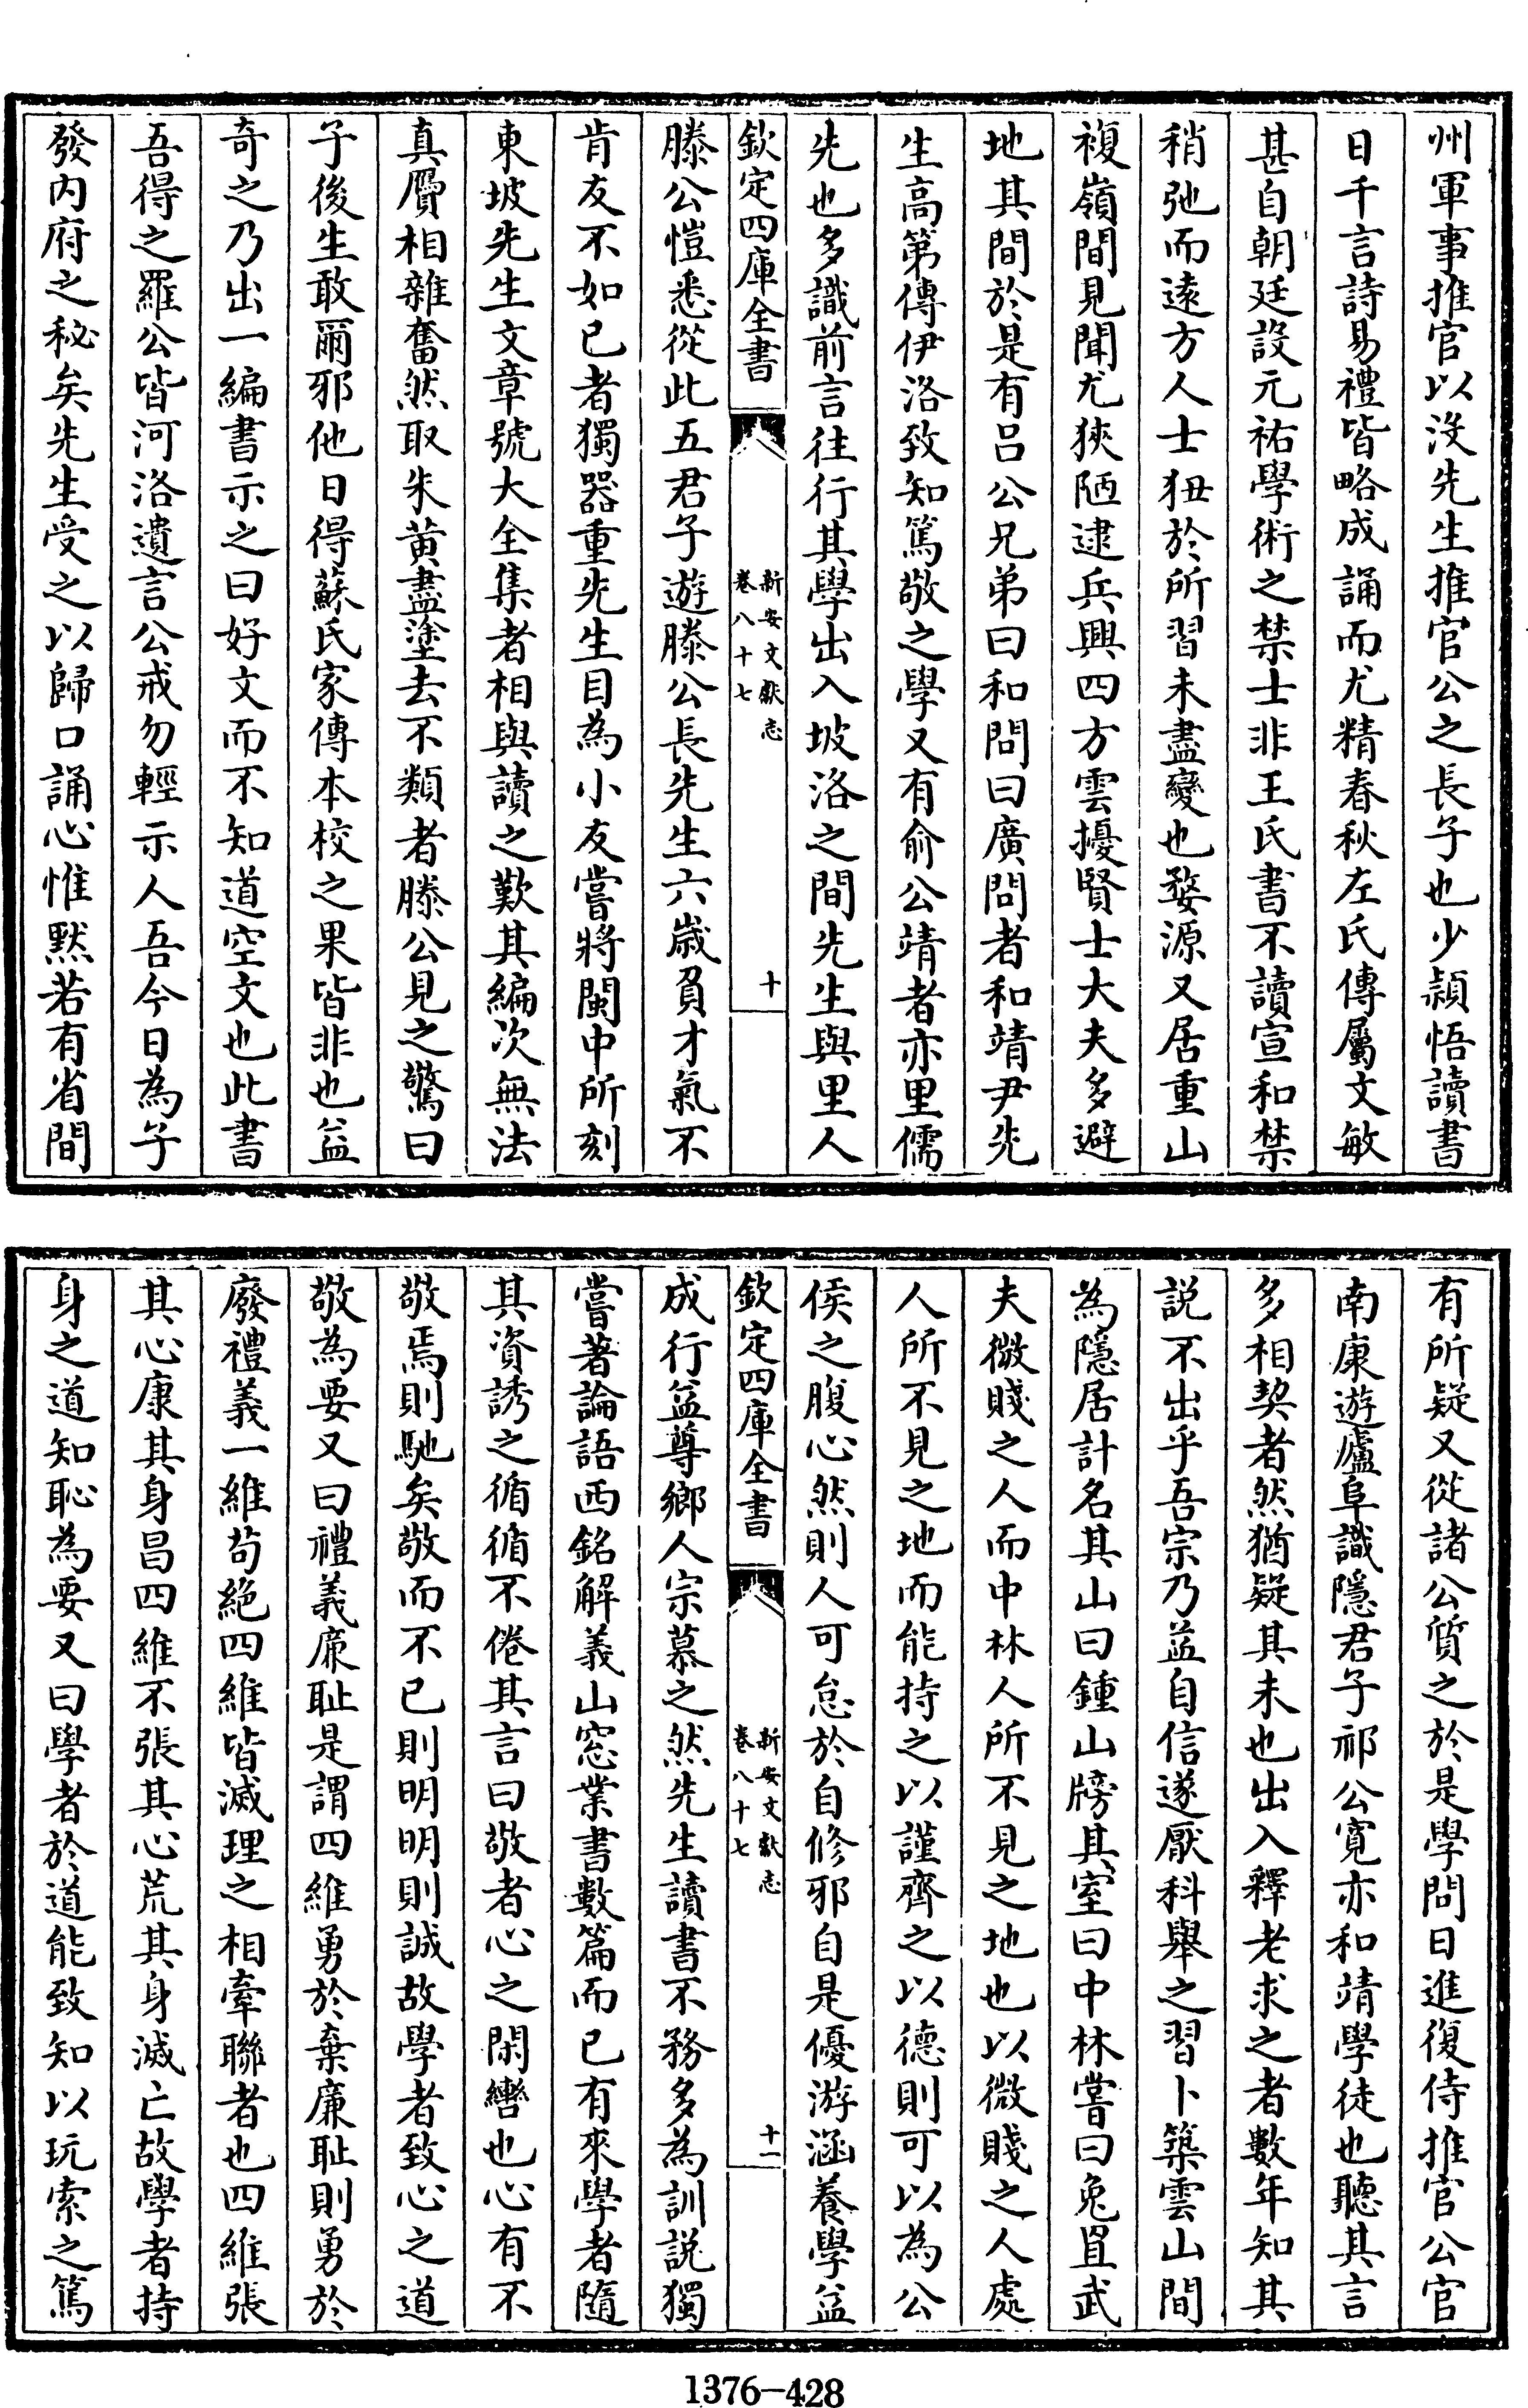 州軍事推官以没先生推官公之長子也少頴悟讀書
日千言詩易禮皆略成誦而尤精春秋左氏傳屬文敏
甚自朝廷設元祐學術之禁士非王氏書不讀宣和禁
稍弛而逺方人士狃於所習未盡變也婺源又居重山
複嶺間見聞尤狹陋逮兵興四方雲擾賢士大夫多避
地其間於是有吕公兄弟曰和問曰廣問者和靖尹先
生高第傳伊洛致知篤敬之學又有俞公靖者亦里儒
先也多識前言往行其學出入坡洛之間先生與里人
欽定四庫全書
新安文獻志
卷八十七
十
滕公愷悉從此五君子遊滕公長先生六歲負才氣不
肯友不如已者獨器重先生目為小友嘗將閩中所刻
東坡先生文章號大全集者相與讀之歎其編次無法
真贗相雜奮然取朱黄盡塗去不類者滕公見之驚曰
子後生敢爾邪他日得蘇氏家傳本校之果皆非也益
奇之乃出一編書示之曰好文而不知道空文也此書
吾得之羅公皆河洛遺言公戒勿輕示人吾今日為子
發内府之秘矣先生受之以歸口誦心惟默若有省間
有所疑又從諸公質之於是學問日進復侍推官公官
南康遊廬阜識隱君子祁公寛亦和靖學徒也聽其言
多相契者然猶疑其未也出入釋老求之者數年知其
説不出乎吾宗乃益自信遂厭科舉之習卜築雲山間
為隱居計名其山曰鍾山牓其室曰中林嘗曰兔罝武
夫微賤之人而中林人所不見之地也以微賤之人處
人所不見之地而能持之以謹齊之以德則可以為公
侯之腹心然則人可怠於自修邪自是優游涵養學益
欽定四庫全書
新安文獻志
卷八十七
十一
成行益尊鄉人宗慕之然先生讀書不務多為訓説獨
嘗著論語西銘解義山窓業書數篇而已有來學者隨
其資誘之循循不倦其言曰敬者心之閑轡也心有不
敬焉則馳矣敬而不已則明明則誠故學者致心之道
敬為要又曰禮義廉耻是謂四維勇於棄廉耻則勇於
廢禮義一維茍絶四維皆滅理之相牽聯者也四維張
其心康其身昌四維不張其心荒其身滅亡故學者持
身之道知恥為要又曰學者於道能致知以玩索之篤
1376-428